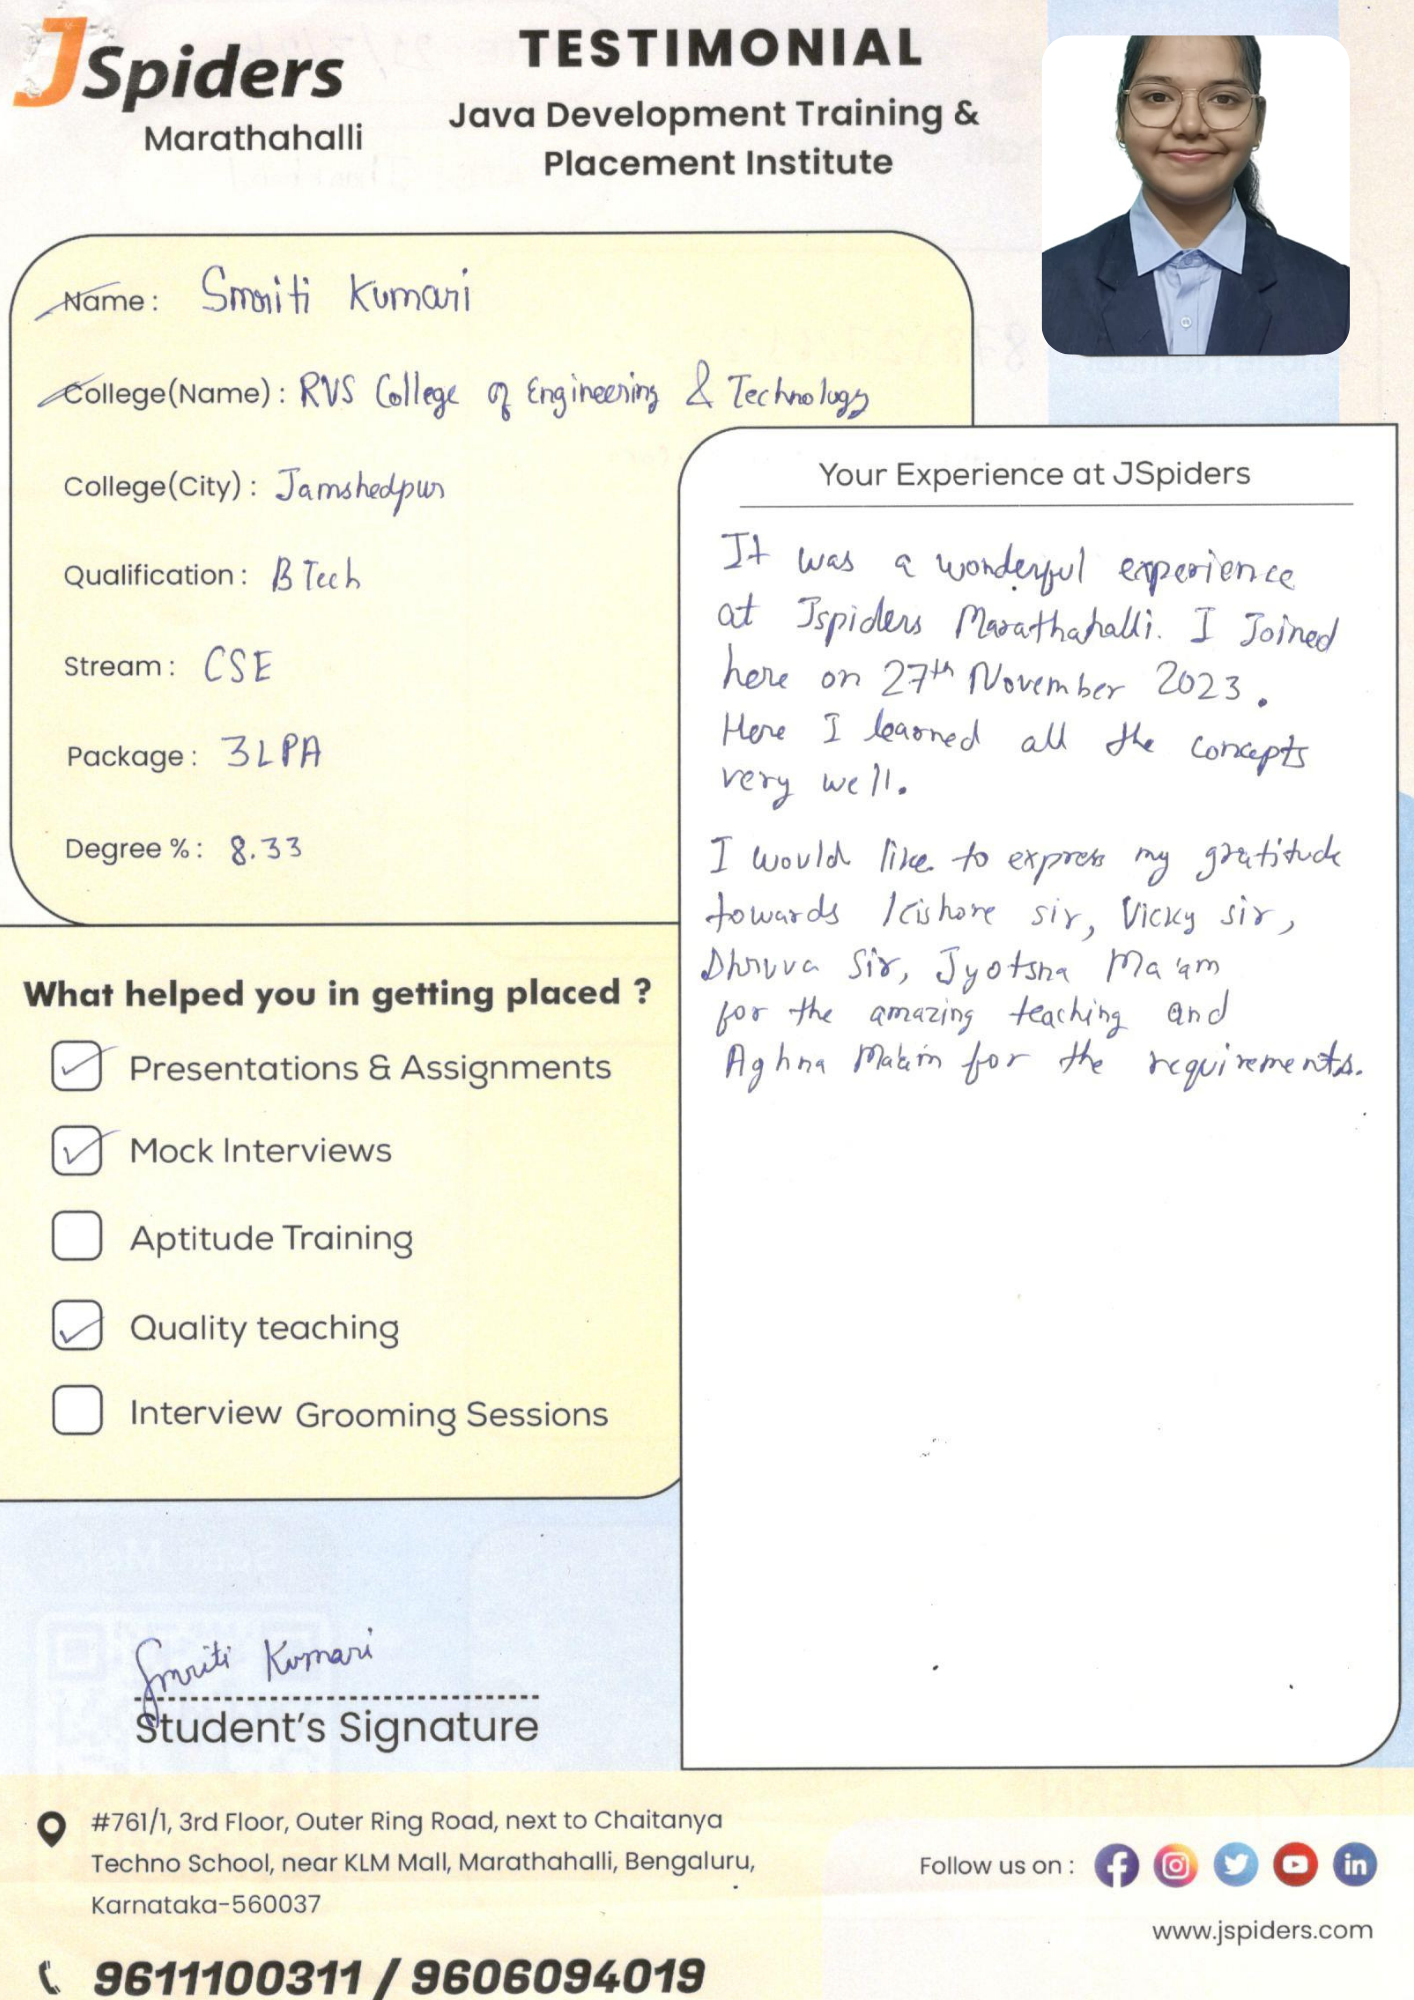 JSpiders
Marathahalli
TESTIMONIAL
Java Development Training &
Placement Institute
Name : Smriti Kumari
College(Name) : RVS College of Engineering & Technology
College(City) : Jamshedpur
Qualification : B Tech
Stream : CSE
Package : 3LPA
Degree % : 8.33
What helped you in getting placed ?
Presentations & Assignments
Mock Interviews
Aptitude Training
Quality teaching
Interview Grooming Sessions
Your Experience at JSpiders
It was a wonderful experience
at Jspiders Marathahalli. I Joined
here on 27th November 2023.
Here I learned all the concepts
very well.
I would like to express my gratitude
towards Kishore sir, Vicky sir,
Dhruva Sir, Jyotsna Ma'am
for the amazing teaching and
Aghna Ma'am for the requirements.
Smriti Kumari
Student's Signature
#761/1, 3rd Floor, Outer Ring Road, next to Chaitanya
Techno School, near KLM Mall, Marathahalli, Bengaluru,
Karnataka-560037
9611100311 / 9606094019
Follow us on :
www.jspiders.com